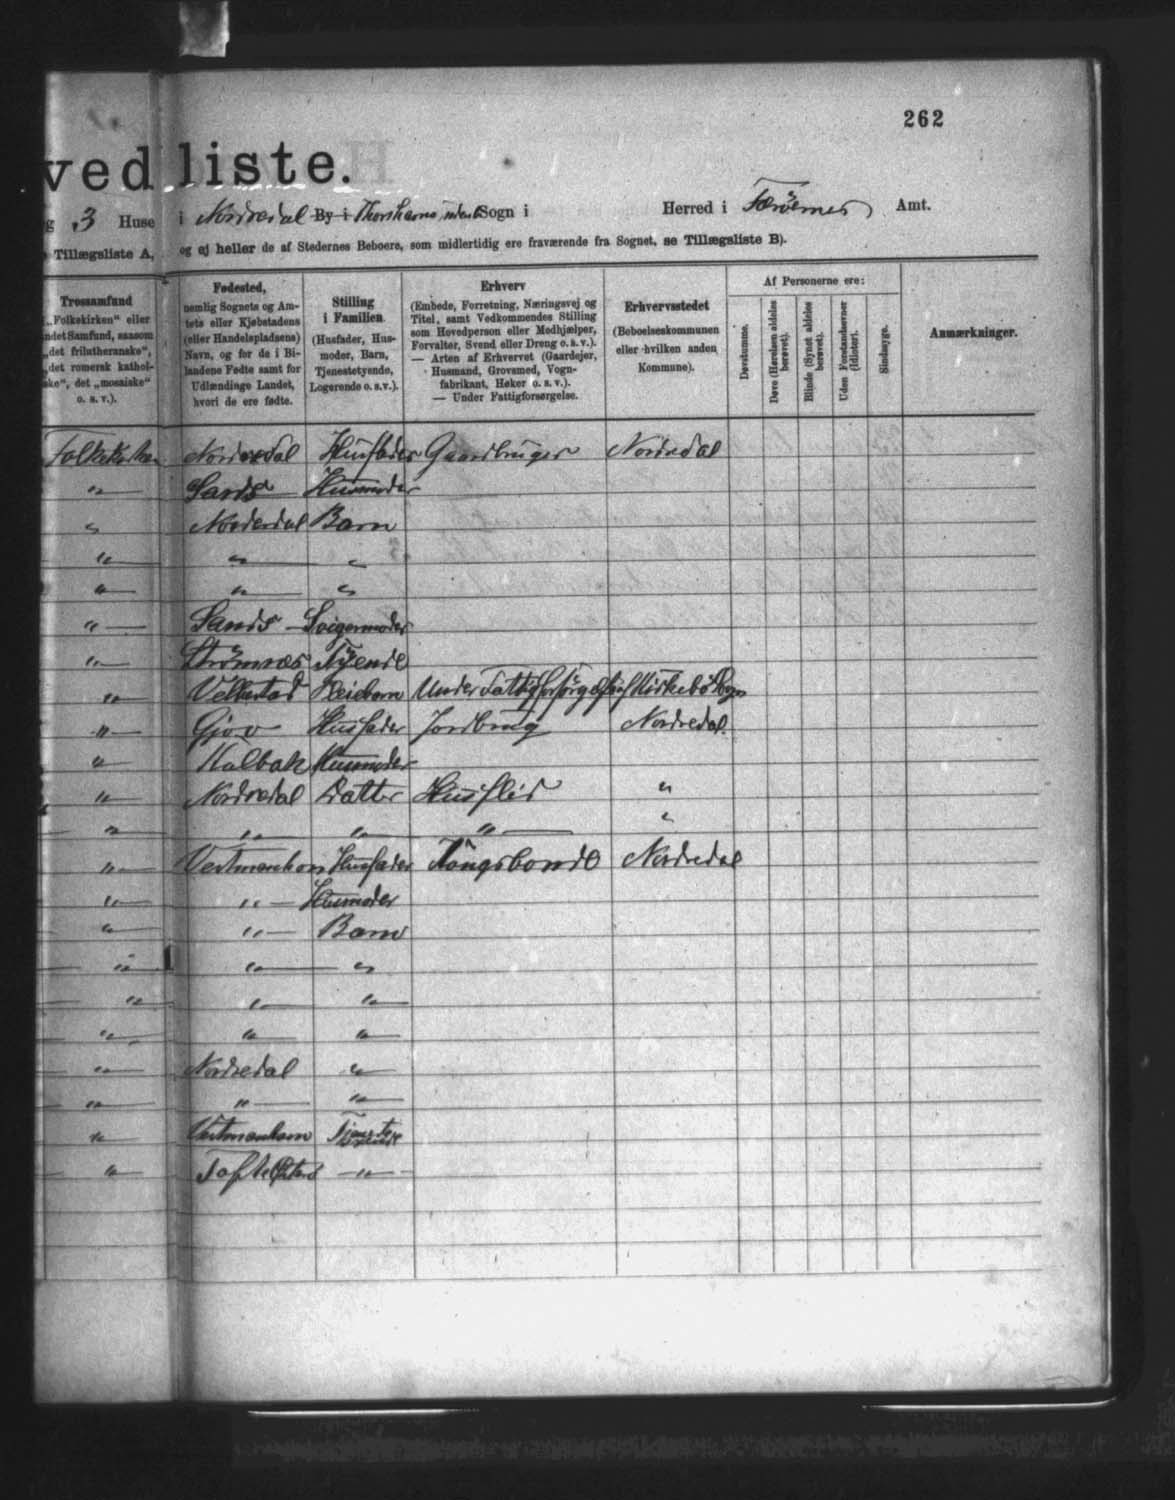 262
ved liste.
g 3 Huse i Nordredal By i Thorshavns udenb Sogn i Herred i Færøernes Amt.
Tillægsliste A, og ej heller de af Stedernes Beboere, som midlertidig ere fraværende fra Sognet, se Tillægsliste B).
Trossamfund
(„Folkekirken“ eller
ndet Samfund, saasom
„det frilutheranske“,
„det romersk kathol-
ske“, det „mosaiske“
o. s. v.).
Fødested,
nemlig Sognets og Am-
tets eller Kjøbstadens
(eller Handelspladsens)
Navn, og for de i Bi-
landene Fødte samt for
Udlændinge Landet,
hvori de ere fødte.
Stilling
i Familien
(Husfader, Hus-
moder, Barn,
Tjenestetyende,
Logerende o. s. v.).
Erhverv
(Embede, Forretning, Næringsvej og
Titel, samt Vedkommendes Stilling
som Hovedperson eller Medhjælper,
Forvalter, Svend eller Dreng o. s. v.).
— Arten af Erhvervet (Gaardejer,
Husmand, Grovsmed, Vogn-
fabrikant, Høker o. s. v.).
— Under Fattigforsørgelse.
Erhvervsstedet
(Beboelseskommunen
eller hvilken anden
Kommune).
Af Personerne ere:
Døvstumme.
Døve (Hørelsen aldeles
berøvet).
Blinde (Synet aldeles
berøvet).
Uden Forstandsevner
(Idioter).
Sindssyge.
Anmærkninger.
Folkekirken Nordredal Husfader Gaardbruger Nordredal
" Sands Husmoder
" Nordredal Barn
" " "
" " "
" Sands Svigermoder
" Strømnæs Tyende
" Velbestad Pleiebarn Under Fattigforsørgelse af Kirkebø Sogn
" Gjov Husfader Jordbrug Nordredal
" Kalbak Husmoder
" Nordredal Datter Husflid "
" " " " "
" Vestmanhavn Husfader Kongsbonde Nordredal
" " Husmoder
" " Barn
" " "
" " "
" " "
" Nordredal "
" " "
" Vestmanhavn Tjenestetyende
" Tofte "